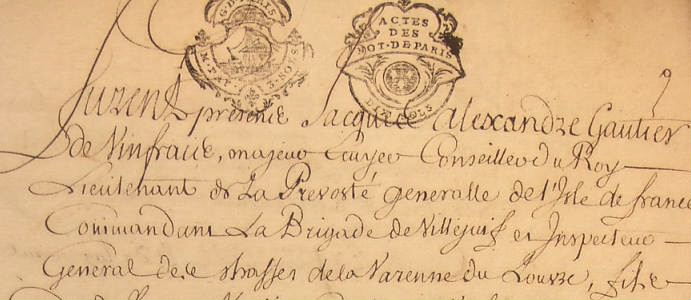 G. DE PARIS
ACTES
DES
NOT. DE PARIS
Furent présents Jacques Alexandre Gautier
de Vinfrais, majeur Ecuyer Conseiller du Roy
Lieutenant de La Prevosté generalle de l'Isle de france
Commandant La Brigade de Villejuif et Inspecteur
General des chasses de la Varenne du Louvre, fils